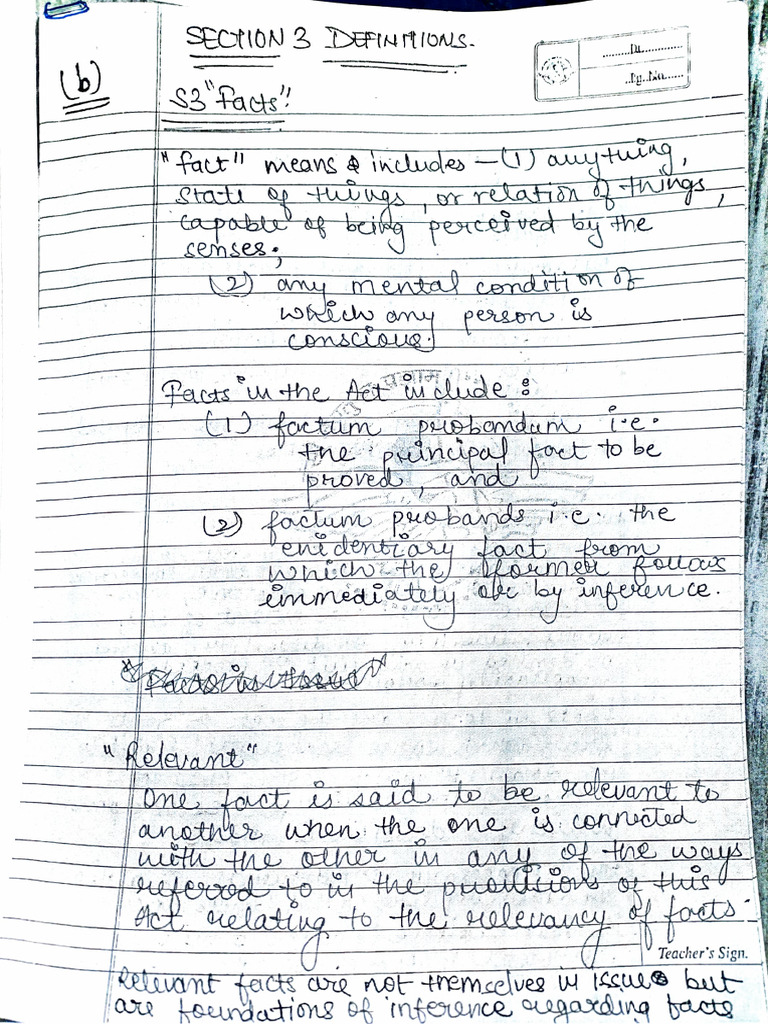 SECTION 3 DEFINITIONS.
(b)
S3 "Facts".
"fact" means & includes — (1) anything,
state of things, or relation of things,
capable of being perceived by the
senses;
(2) any mental condition of
which any person is
conscious.
Facts in the Act include :
(1) factum probandum i.e.
the principal fact to be
proved, and
(2) factum probands i.e. the
evidentiary fact from
which the former follows
immediately or by inference.
"Relevant"
One fact is said to be relevant to
another when the one is connected
with the other in any of the ways
referred to in the provisions of this
Act relating to the relevancy of facts.
Teacher's Sign.
Relevant facts are not themselves in issue but
are foundations of inference regarding facts